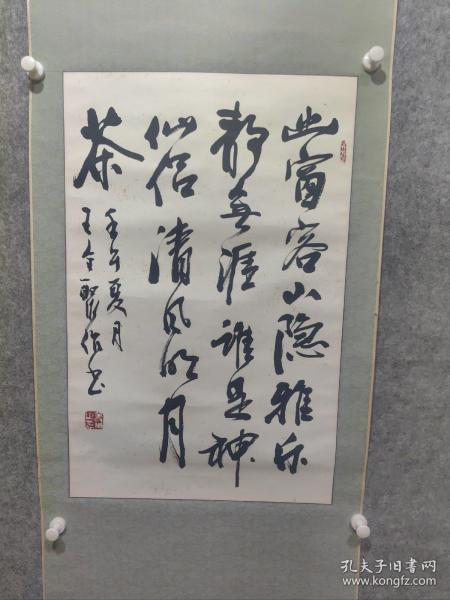 幽窗容山隐雅乐
静无涯谁是神
仙侣清风明月
茶
壬午夏月
王金作书
孔夫子旧书网
www.kongfz.com